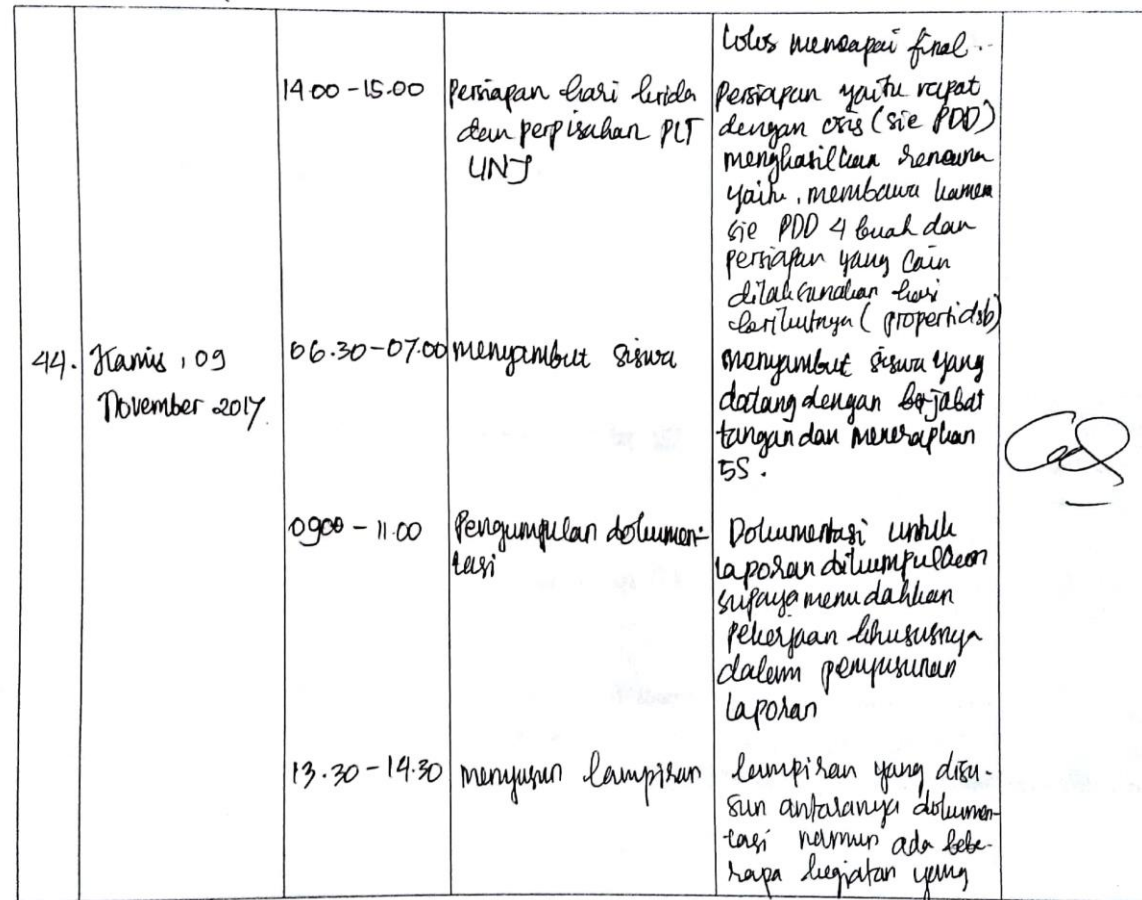 lolos mencapai final.
14.00 - 15.00
Persiapan hari krida
dan perpisahan PLT
UNY
Persiapan yaitu rapat
dengan osis (sie PDD)
menghasilkan rencana
yaitu, membawa kamera
sie PDD 4 buah dan
persiapan yang lain
dilaksanakan hari
berikutnya (properti dsb)
44.
Kamis, 09
November 2017.
06.30 - 07.00
menyambut siswa
menyambut siswa yang
datang dengan berjabat
tangan dan menerapkan
5S.
0900 - 11.00
Pengumpulan dokumen-
tasi
Dokumentasi untuk
laporan dikumpulkan
supaya memudahkan
pekerjaan khususnya
dalam penyusunan
laporan
13.30 - 14.30
menyusun lampiran
lampiran yang disu-
sun antaranya dokumen-
tasi namun ada bebe-
rapa kegiatan yang